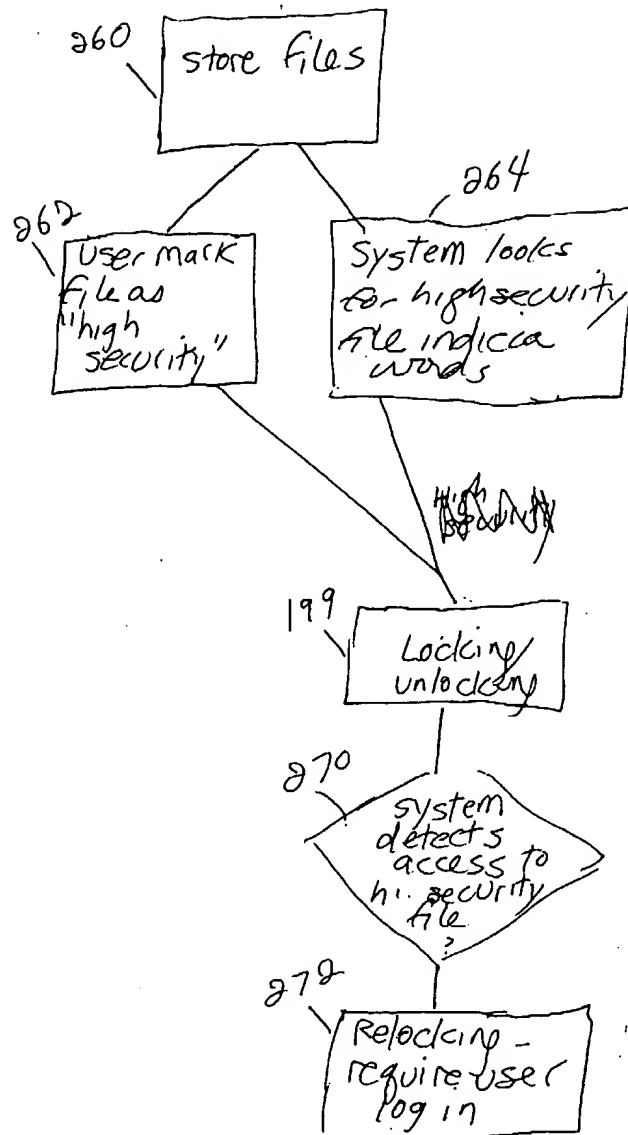 260
store files
262
user mark
file as
"high
security"
264
System looks
for high security
file indicia
words
199
Locking/
unlocking
270
system
detects
access to
hi. security
file
?
272
Relocking -
require user
log in